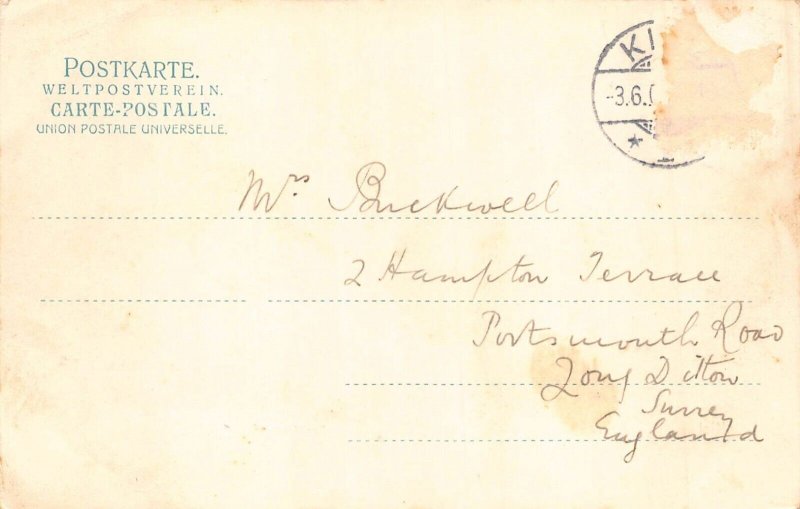 POSTKARTE.
WELTPOSTVEREIN.
CARTE-POSTALE.
UNION POSTALE UNIVERSELLE.
KI
-3.6.
Mrs Buckwell
2 Hampton Terrace
Portsmouth Road
Long Ditton
Surrey
England